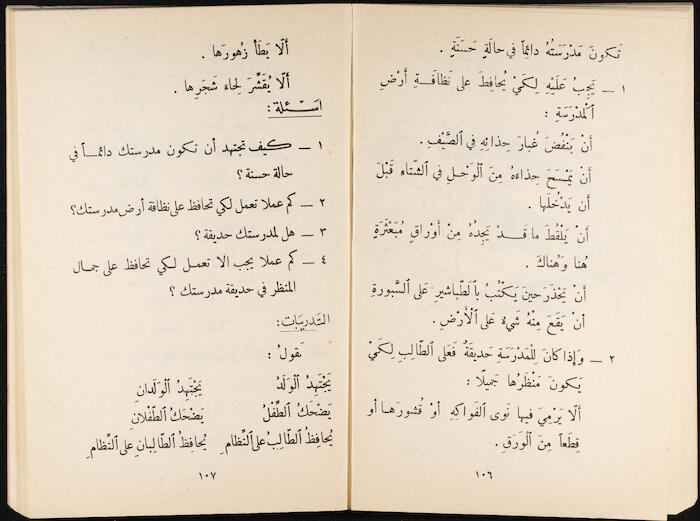 تَكونَ مَدْرَسَتُهُ دائِماً في حالَةٍ حَسَنَةٍ .
١ ــ يَجِبُ عَلَيْهِ لِكَيْ يُحافِظَ على نَظافَةِ أَرْضِ
ٱلْمَدْرَسَةِ :
أَنْ يَنْفُضَ غُبارَ حِذائِهِ في ٱلصَّيْفِ .
أَنْ يَمْسَحَ حِذاءَهُ مِنَ ٱلْوَحْلِ في ٱلشِّتاءِ قَبْلَ
أَن يَدْخُلَها .
أَنْ يَلْقُطَ ما قَـدْ يَجِدُهُ مِنْ أَوْراقٍ مُبَعْثَرَةٍ
هُنا وَهُناكَ .
أَنْ يَحْذَرَ حينَ يَكْتُبُ بِٱلطَّباشيرِ عَلى السَّبورةِ
أَنْ يَقَعَ مِنْهُ شَيْءٌ عَلى ٱلْأَرْضِ .
٢ ــ وَإِذا كانَ لِلْمَدْرَسَةِ حَديقَةٌ فَعَلى ٱلطّالِبِ لِكَيْ
يَكونَ مَنْظَرُها جَميلًا :
أَلّا يَرْمِيَ فيها نَوى الفَواكِهِ أَوْ قُشورَهـا أو
قِطَعاً مِنَ ٱلْوَرَقِ .
١٠٦
أَلّا يَطَأَ زُهورَها .
أَلّا يُقَشِّرَ لِحاءَ شَجَرِها .
اسئلة :
١ ــ كيف تجتهد أن تكون مدرستك دائمـاً في
حالة حسنة ؟
٢ ــ كم عملا تعمل لكي تحافظ على نظافة أرض مدرستك؟
٣ ــ هل لمدرستك حديقة ؟
٤ ــ كم عملا يجب الا تعمـل لـكي تحافظ على جمال
المنظر في حديقة مدرستك ؟
التَّدريبات :
نَقولُ :
يَجْتَهِدُ ٱلْوَلَدُ يَجْتَهِدُ ٱلْوَلَدانِ
يَضْحَكُ ٱلطِّفْلُ يَضْحَكُ ٱلطِّفْلانِ
يُحافِظُ ٱلطّالِبُ على ٱلنِّظامِ يُحافِظُ ٱلطّالِبانِ على ٱلنِّظامِ
١٠٧